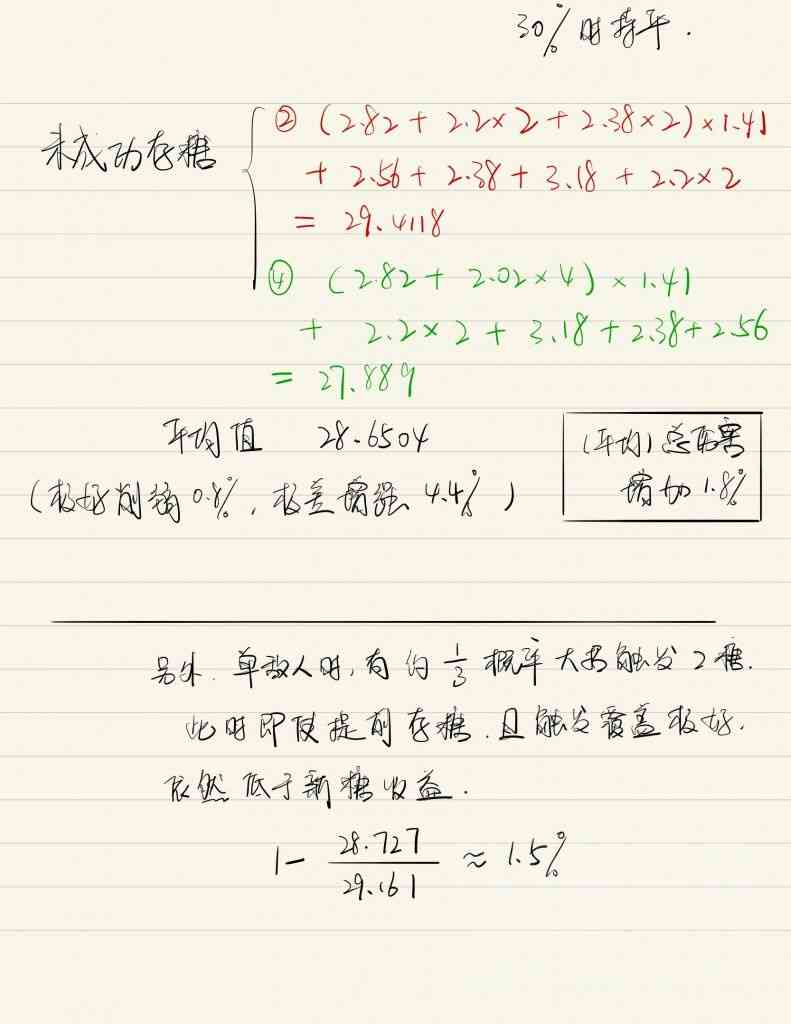 30% 时持平.
未成功存糖
② (2.82 + 2.2×2 + 2.38×2)×1.41
+ 2.56 + 2.38 + 3.18 + 2.2×2
= 29.4118
④ (2.82 + 2.02×4) × 1.41
+ 2.2×2 + 3.18 + 2.38 + 2.56
= 27.889
平均值 28.6504
(平均) 总伤害
增加 1.8%
(极好削弱 0.8%, 极差增强 4.4%)
另外. 单敌人时, 有约 1/3 概率大招触发2糖.
此时即使提前存糖. 且触发覆盖极好.
依然低于新糖收益.
1 - 28.727/29.161 ≈ 1.5%